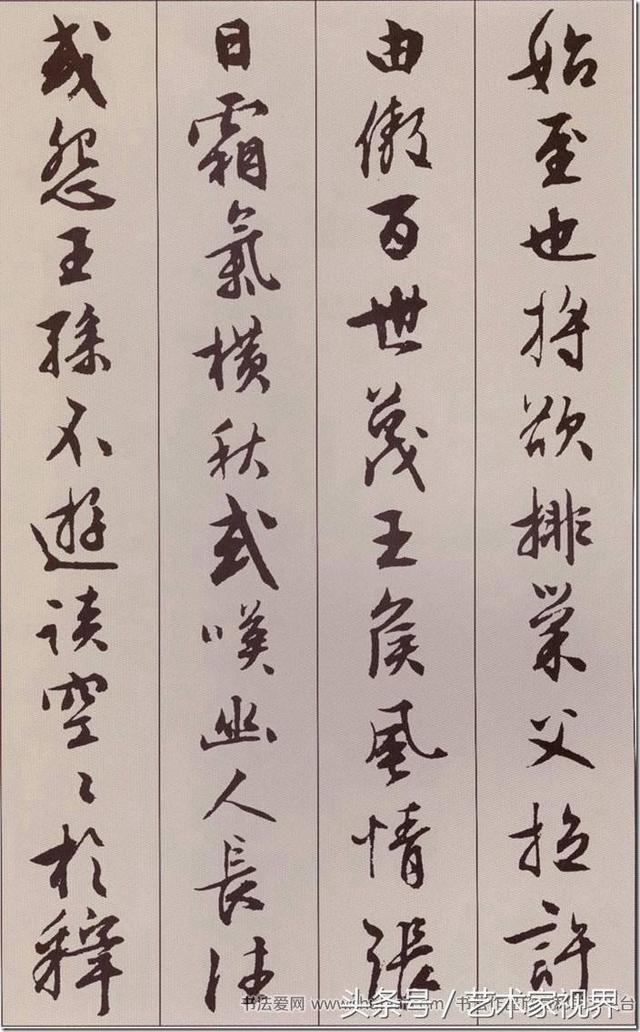 始至也將欲排巢父拉許
由傲百世蔑王侯風情張
日霜氣橫秋或嘆幽人長往
或怨王孫不遊談空〻於釋
书法爱网
头条号/艺术家视界